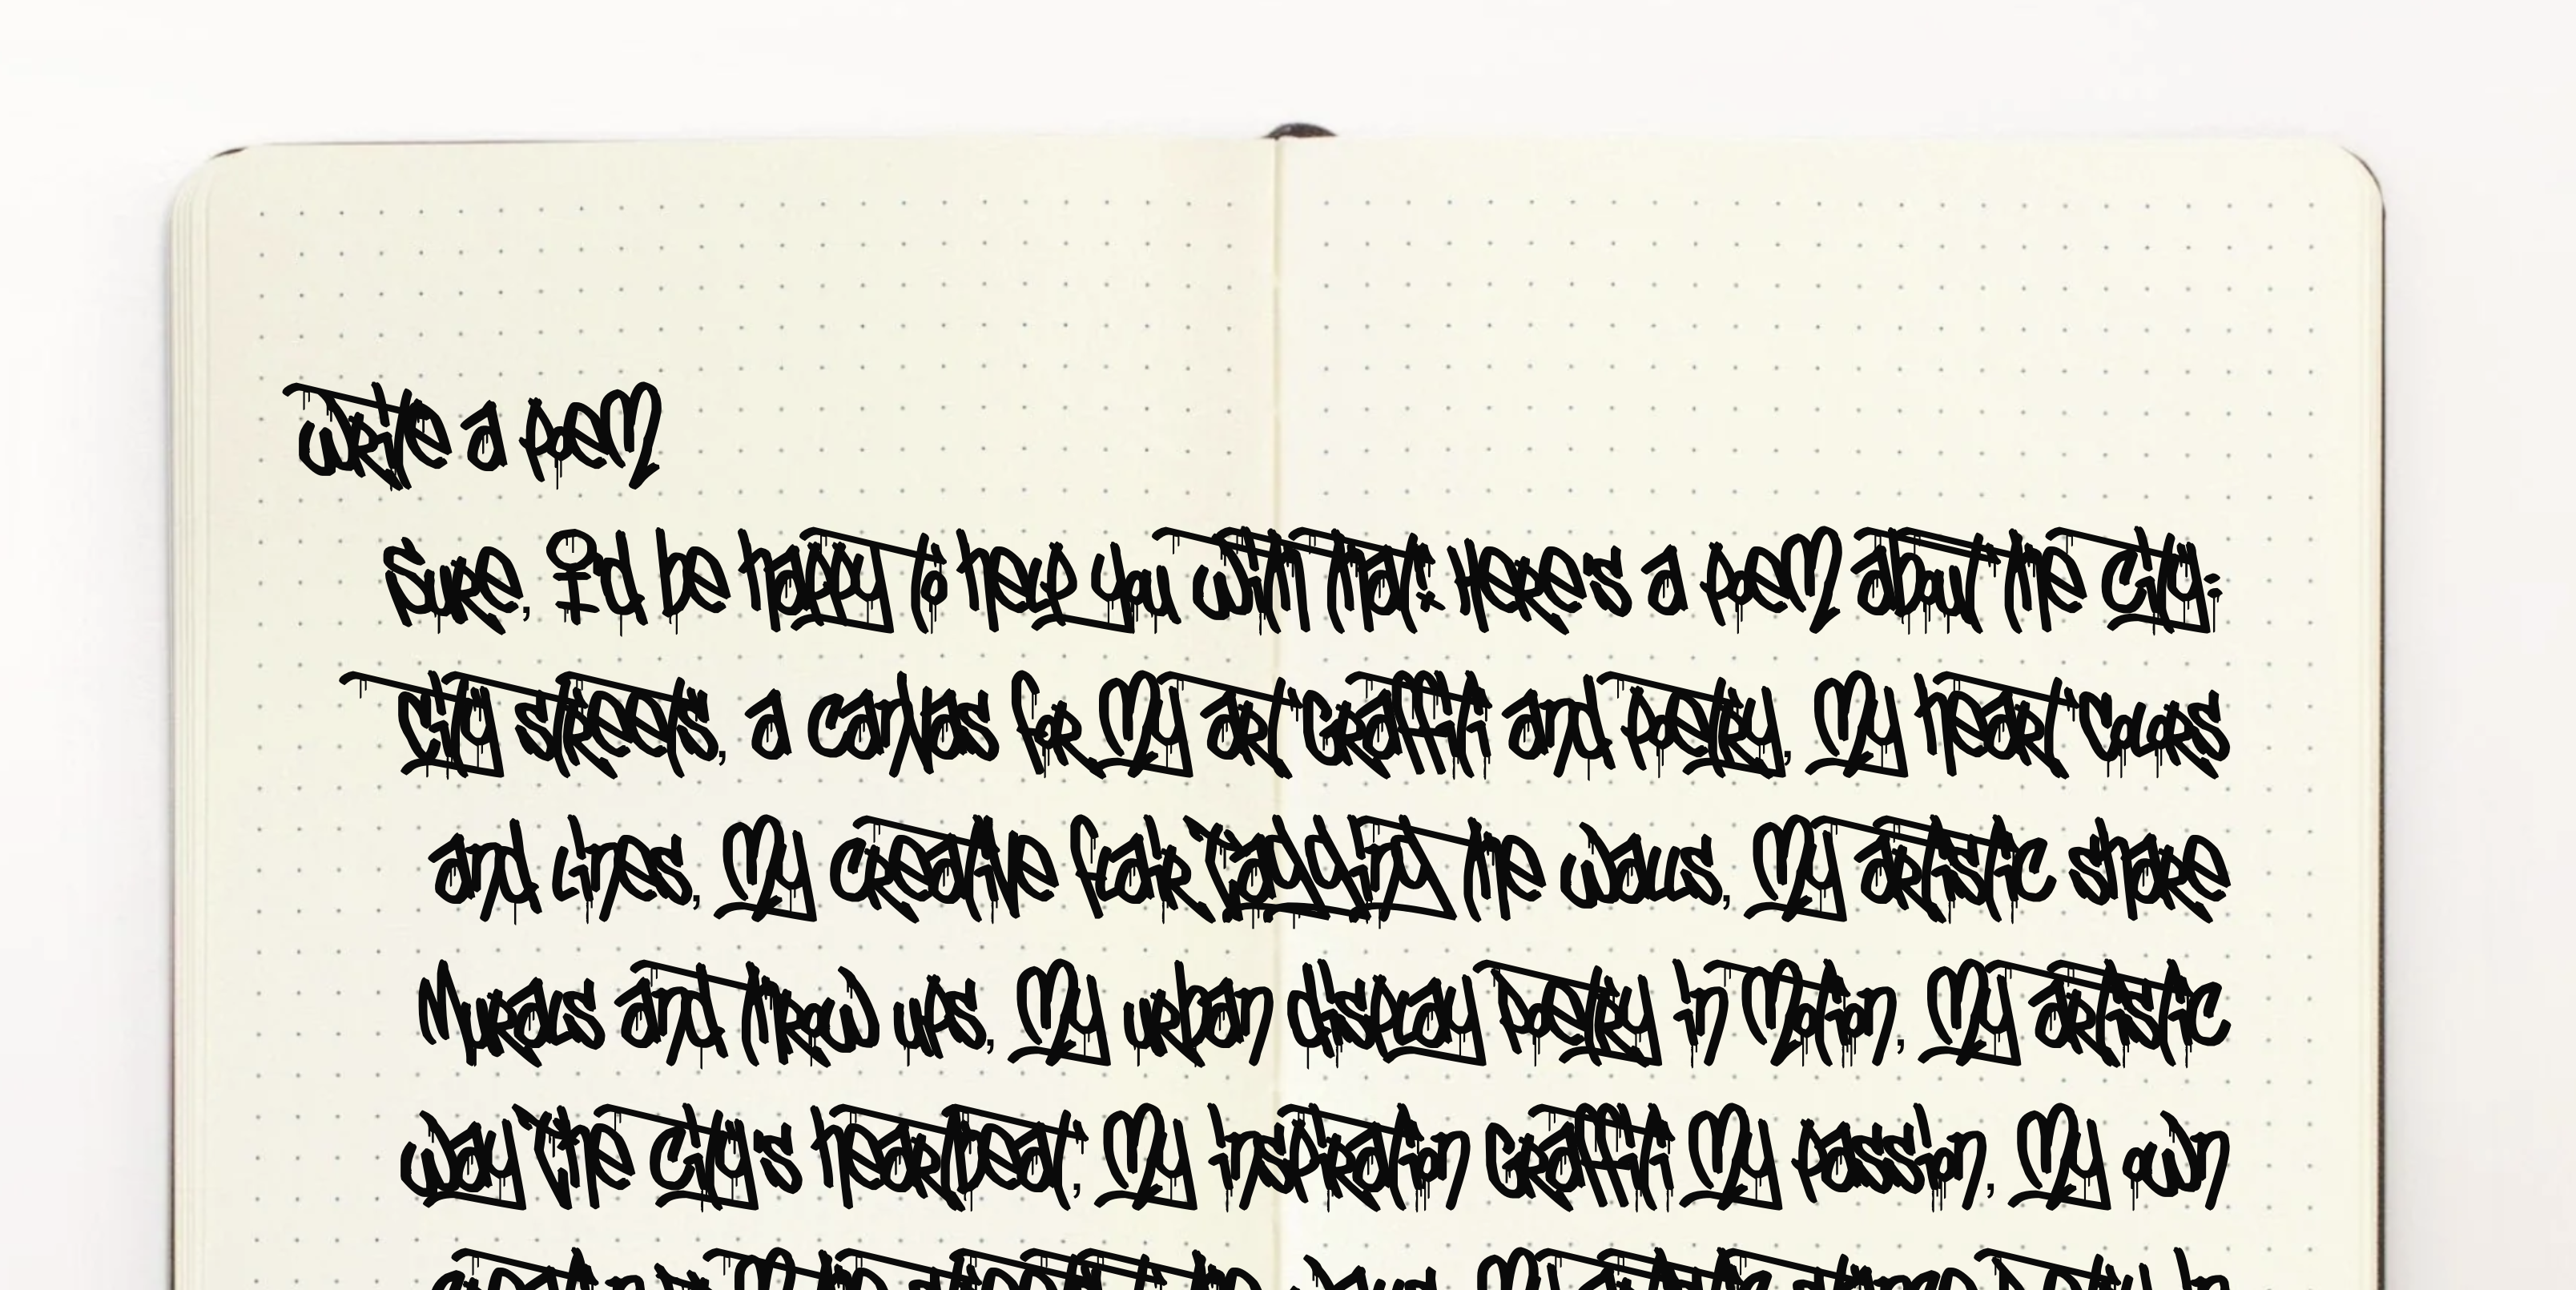 Write a poem
Sure, I'd be happy to help you with that! Here's a poem about the city:
City streets, a canvas for my art Graffiti and poetry, my heart Colors
and lines, my creative flair Tagging the walls, my artistic share
Murals and throw ups, my urban display Poetry in motion, my artistic
way The city's heartbeat, my inspiration Graffiti my passion, my own